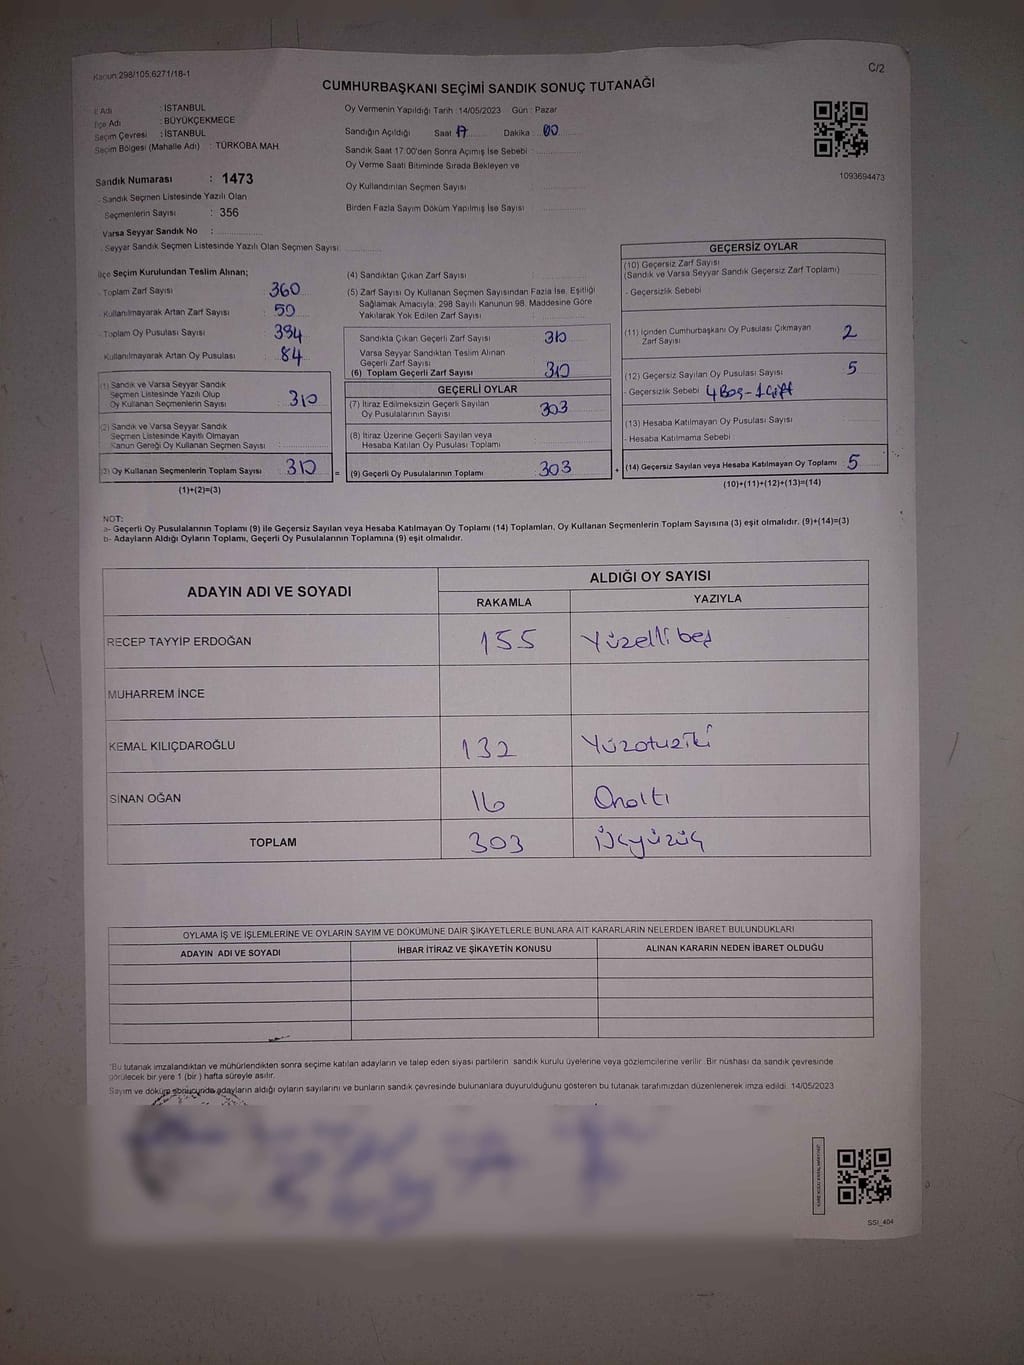 Kanun 298/105,6271/18-1
C/2
CUMHURBAŞKANI SEÇİMİ SANDIK SONUÇ TUTANAĞI
İl Adı : İSTANBUL
İlçe Adı : BÜYÜKÇEKMECE
Seçim Çevresi : İSTANBUL
Seçim Bölgesi (Mahalle Adı) : TÜRKOBA MAH
Sandık Numarası : 1473
- Sandık Seçmen Listesinde Yazılı Olan
Seçmenlerin Sayısı : 356
Varsa Seyyar Sandık No :
- Seyyar Sandık Seçmen Listesinde Yazılı Olan Seçmen Sayısı
Oy Vermenin Yapıldığı Tarih : 14/05/2023 Gün : Pazar
Sandığın Açıldığı Saat 17 Dakika : 00
Sandık Saat 17:00'den Sonra Açımış İse Sebebi :
Oy Verme Saati Bitiminde Sırada Bekleyen ve
Oy Kullandırılan Seçmen Sayısı
Birden Fazla Sayım Döküm Yapılmış İse Sayısı
1093694473
İlçe Seçim Kurulundan Teslim Alınan;
- Toplam Zarf Sayısı : 360
- Kullanılmayarak Artan Zarf Sayısı : 50
- Toplam Oy Pusulası Sayısı : 394
- Kullanılmayarak Artan Oy Pusulası : 84
(1) Sandık ve Varsa Seyyar Sandık
Seçmen Listesinde Yazılı Olup
Oy Kullanan Seçmenlerin Sayısı : 310
(2) Sandık ve Varsa Seyyar Sandık
Seçmen Listesinde Kayıtlı Olmayan
Kanun Gereği Oy Kullanan Seçmen Sayısı
(3) Oy Kullanan Seçmenlerin Toplam Sayısı : 310
=
(1)+(2)=(3)
(4) Sandıktan Çıkan Zarf Sayısı
(5) Zarf Sayısı Oy Kullanan Seçmen Sayısından Fazla İse, Eşitliği
Sağlamak Amacıyla, 298 Sayılı Kanunun 98. Maddesine Göre
Yakılarak Yok Edilen Zarf Sayısı
Sandıkta Çıkan Geçerli Zarf Sayısı 310
Varsa Seyyar Sandıktan Teslim Alınan
Geçerli Zarf Sayısı
(6) Toplam Geçerli Zarf Sayısı 310
GEÇERLİ OYLAR
(7) İtiraz Edilmeksizin Geçerli Sayılan
Oy Pusulalarının Sayısı 303
(8) İtiraz Üzerine Geçerli Sayılan veya
Hesaba Katılan Oy Pusulası Toplamı
(9) Geçerli Oy Pusulalarının Toplamı 303
+
GEÇERSİZ OYLAR
(10) Geçersiz Zarf Sayısı
(Sandık ve Varsa Seyyar Sandık Geçersiz Zarf Toplamı)
- Geçersizlik Sebebi :
(11) İçinden Cumhurbaşkanı Oy Pusulası Çıkmayan
Zarf Sayısı 2
(12) Geçersiz Sayılan Oy Pusulası Sayısı 5
- Geçersizlik Sebebi 4 Boş - 1 çift
(13) Hesaba Katılmayan Oy Pusulası Sayısı
- Hesaba Katılmama Sebebi
(14) Geçersiz Sayılan veya Hesaba Katılmayan Oy Toplamı 5
(10)+(11)+(12)+(13)=(14)
NOT:
a- Geçerli Oy Pusulalarının Toplamı (9) ile Geçersiz Sayılan veya Hesaba Katılmayan Oy Toplamı (14) Toplamları, Oy Kullanan Seçmenlerin Toplam Sayısına (3) eşit olmalıdır. (9)+(14)=(3)
b- Adayların Aldığı Oyların Toplamı, Geçerli Oy Pusulalarının Toplamına (9) eşit olmalıdır.
ADAYIN ADI VE SOYADI
ALDIĞI OY SAYISI
RAKAMLA YAZIYLA
RECEP TAYYİP ERDOĞAN 155 Yüzelli beş
MUHARREM İNCE
KEMAL KILIÇDAROĞLU 132 Yüzotuziki
SİNAN OĞAN 16 Onaltı
TOPLAM 303 Üçyüzüç
OYLAMA İŞ VE İŞLEMLERİNE VE OYLARIN SAYIM VE DÖKÜMÜNE DAİR ŞİKAYETLERLE BUNLARA AİT KARARLARIN NELERDEN İBARET BULUNDUKLARI
ADAYIN ADI VE SOYADI İHBAR İTİRAZ VE ŞİKAYETİN KONUSU ALINAN KARARIN NEDEN İBARET OLDUĞU
*Bu tutanak imzalandıktan ve mühürlendikten sonra seçime katılan adayların ve talep eden siyasi partilerin sandık kurulu üyelerine veya gözlemcilerine verilir. Bir nüshası da sandık çevresinde
görülecek bir yere 1 (bir) hafta süreyle asılır.
Sayım ve döküm sonucunda adayların aldığı oyların sayılarını ve bunların sandık çevresinde bulunanlara duyurulduğunu gösteren bu tutanak tarafımızdan düzenlenerek imza edildi. 14/05/2023
SSI_404